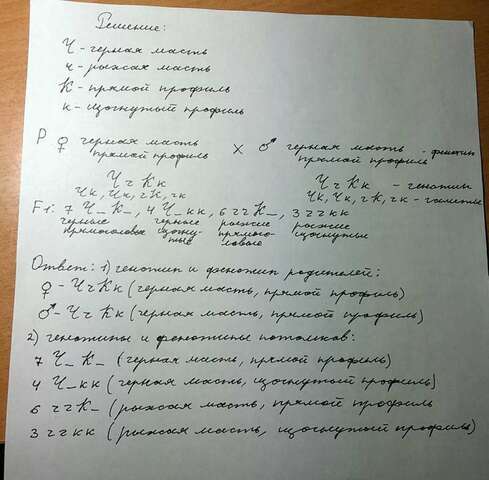 Решение:
Ч - черная масть
ч - рыжая масть
К - прямой профиль
к - щогнутый профиль
P ♀ черная масть прямой профиль × ♂ черная масть прямой профиль - фенотип
Ч ч К к Ч ч К к - генотип
ЧК, Чк, чК, чк ЧК, Чк, чК, чк - гаметы
F1: 7 Ч_К_, 4 Ч_кк, 6 ччК_, 3 ччкк
черные черные рыжие рыжие
прямоголовые щогну- прямого- щогнутые
тые ловые
Ответ: 1) генотип и фенотип родителей:
♀ - Ч ч К к (черная масть, прямой профиль)
♂ - Ч ч К к (черная масть, прямой профиль)
2) генотипы и фенотипы потомков:
7 Ч_ К_ (черная масть, прямой профиль)
4 Ч_кк (черная масть, щогнутый профиль)
6 ч ч К_ (рыжая масть, прямой профиль
3 ч ч к к (рыжая масть, щогнутый профиль)